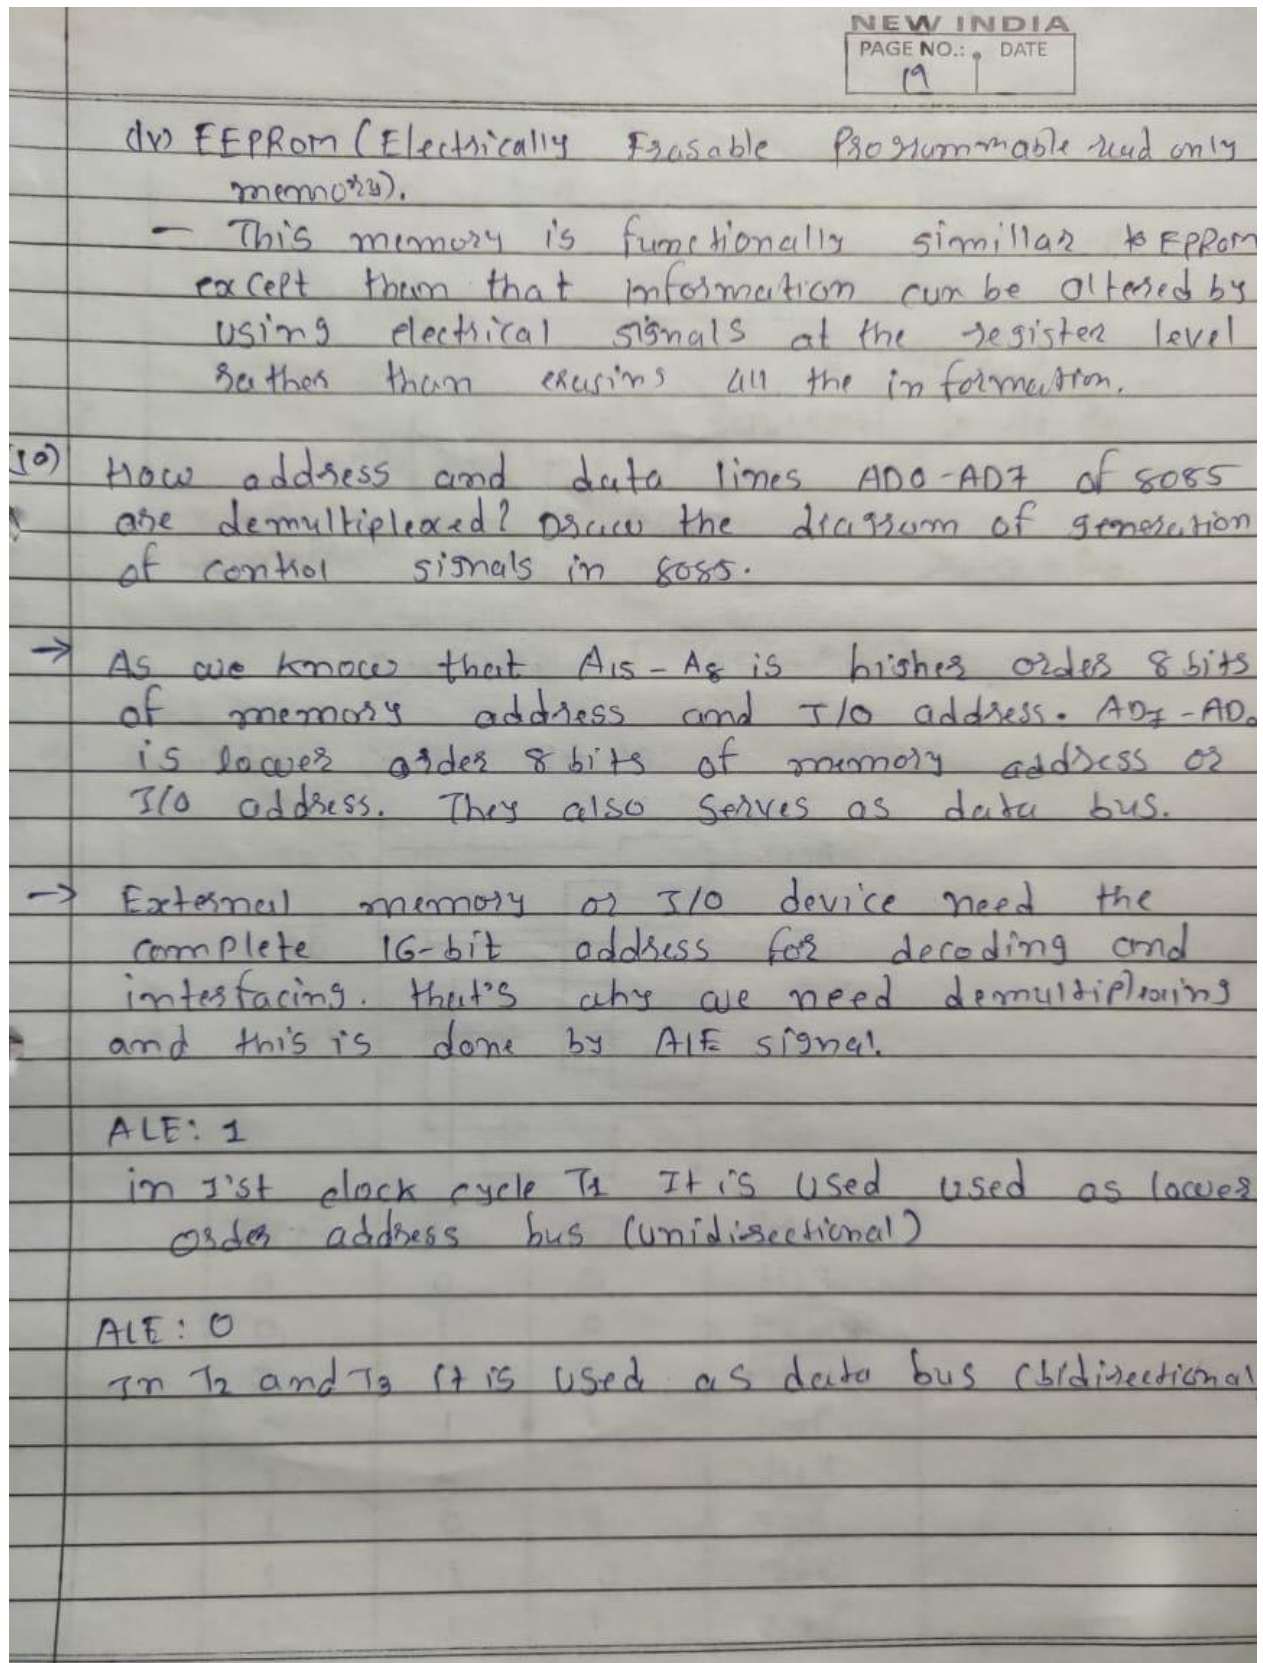 NEW INDIA
PAGE NO.: DATE
19
(iv) EEPROM (Electrically Erasable Programmable read only
memory).
- This memory is functionally simillar to EPROM
except than that information can be altered by
using electrical signals at the register level
rather than erasing all the information.
10) How address and data lines AD0-AD7 of 8085
are demultiplexed? Draw the diagram of generation
of control signals in 8085.
→ As we know that A15 - A8 is higher order 8 bits
of memory address and I/O address. AD7 - AD0
is lower order 8 bits of memory address or
I/O address. They also serves as data bus.
→ External memory or I/O device need the
complete 16-bit address for decoding and
interfacing. that's why we need demultiplexing
and this is done by ALE signal.
ALE: 1
in 1'st clock cycle T1 It is used used as lower
order address bus (unidirectional)
ALE: 0
In T2 and T3 it is used as data bus (bidirectional